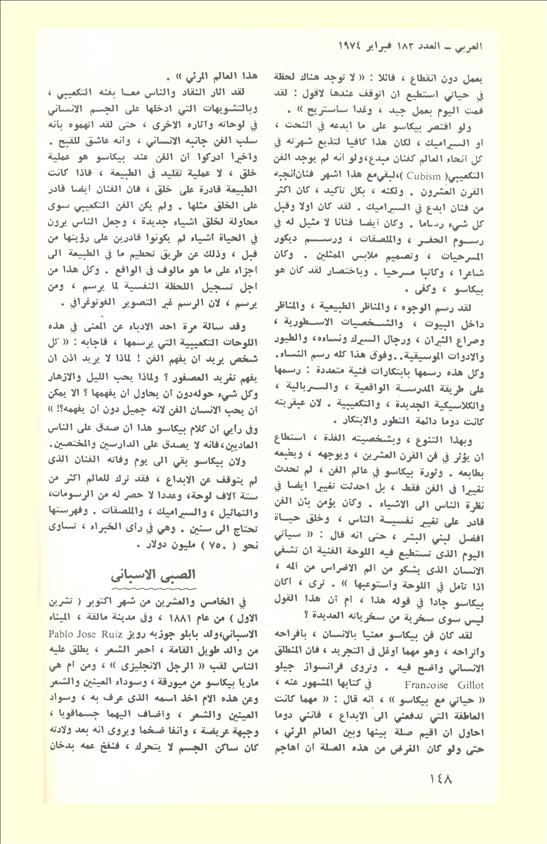 العربي - العدد ١٨٣ فبراير ١٩٧٤
يعمل دون انقطاع ، قائلا : « لا توجد هناك لحظة
في حياتي استطيع ان اتوقف عندها لاقول : لقد
قمت اليوم بعمل جيد ، وغدا ساستريح » .
ولو اقتصر بيكاسو على ما ابدعه في النحت ،
او السيراميك ، لكان هذا كافيا لتذيع شهرته في
كل انحاء العالم كفنان مبدع،ولو انه لم يوجد الفن
التكعيبي( Cubism )،لبقي مع هذا اشهر فنان انجبه
القرن العشرون . ولكنه ، بكل تأكيد ، كان اكثر
من فنان ابدع في السيراميك . لقد كان اولا وقبل
كل شيء رساما . وكان أيضا فنانا لا مثيل له في
رسوم الحفر ، والملصقات ، ورسم ديكور
المسرحيات ، وتصميم ملابس الممثلين . وكان
شاعرا ، وكاتبا مسرحيا . وباختصار لقد كان هو
بيكاسو ، وكفى .
لقد رسم الوجوه ، والمناظر الطبيعية ، والمناظر
داخل البيوت ، والشخصيات الاسطورية ،
وصراع الثيران ، ورجال السيرك ونساءه، والطيور
والادوات الموسيقية..وفوق هذا كله رسم النساء.
وكل هذه رسمها بابتكارات فنية متعددة : رسمها
على طريقة المدرسة الواقعية ، والسريالية ،
والكلاسيكية الجديدة ، والتكعيبية . لان عبقريته
كانت دوما دائمة التطور والابتكار .
وبهذا التنوع ، وبشخصيته الفذة ، استطاع
ان يؤثر في فن القرن العشرين ، ويوجهه ، ويطبعه
بطابعه . وثورة بيكاسو في عالم الفن ، لم تحدث
تغييرا في الفن فقط، بل احدثت تغييرا ايضا في
نظرة الناس الى الاشياء . وكان يؤمن بأن الفن
قادر على تغيير نفسية الناس ، وخلق حياة
افضل لبني البشر ، حتى انه قال : « سيأتي
اليوم الذي تستطيع فيه اللوحة الفنية ان تشفي
الانسان الذي يشكو من ألم الاضراس من ألمه ،
اذا تأمل في اللوحة واستوعبها » . ترى ، أكان
بيكاسو جادا في قوله هذا ، ام أن هذا القول
ليس سوى سخرية من سخرياته العديدة ؟
لقد كان فن بيكاسو معنيا بالانسان ، بأفراحه
وأتراحه ، وهو مهما اوغل في التجريد ، فان المنطلق
الانساني واضح فيه . وتروى فرانسواز جيلو
Francoise Gillot في كتابها المشهور عنه ،
« حياتي مع بيكاسو » ، انه قال : « مهما كانت
العاطفة التي تدفعني الى الابداع ، فانني دوما
احاول ان اقيم صلة بينها وبين العالم المرئي ،
حتى ولو كان الغرض من هذه الصلة ان أهاجم
هذا العالم المرئي » .
لقد اثار النقاد والناس معا بفنه التكعيبي ،
وبالتشويهات التي ادخلها على الجسم الانساني
في لوحاته وآثاره الاخرى ، حتى لقد اتهموه بأنه
سلب الفن جانبه الانساني ، وأنه عاشق للقبح .
واخيرا ادركوا ان الفن عند بيكاسو هو عملية
خلق ، لا عملية تقليد في الطبيعة ، فاذا كانت
الطبيعة قادرة على خلق ، فان الفنان ايضا قادر
على الخلق مثلها . ولم يكن الفن التكعيبي سوى
محاولة لخلق اشياء جديدة ، وجعل الناس يرون
في الحياة أشياء لم يكونوا قادرين على رؤيتها من
قبل ، وذلك عن طريق تحطيم ما في الطبيعة الى
أجزاء على ما هو مألوف في الواقع . وكل هذا من
أجل تسجيل اللحظة النفسية لما يرسم ، ومن
يرسم ، لان الرسم غير التصوير الفوتوغرافي .
وقد ساله مرة احد الادباء عن المعنى في هذه
اللوحات التكعيبية التي يرسمها ، فأجابه : « كل
شخص يريد ان يفهم الفن ! لماذا لا يريد اذن ان
يفهم تغريد العصفور ؟ ولماذا يحب الليل والازهار
وكل شيء حوله دون ان يحاول أن يفهمها ؟ ألا يمكن
ان يحب الانسان الفن لانه جميل دون أن يفهمه؟! »
وفى رأيي ان كلام بيكاسو هذا ان صدق على الناس
العاديين،فانه لا يصدق على الدارسين والمختصين.
ولان بيكاسو بقي الى يوم وفاته الفنان الذى
لم يتوقف عن الابداع ، فقد ترك للعالم أكثر من
ستة آلاف لوحة، وعددا لا حصر له من الرسومات،
والتماثيل ، والسيراميك ، والملصقات . وفهرستها
تحتاج الى سنين . وهي في رأى الخبراء ، تساوى
نحو ( ٧٥٠ ) مليون دولار .
الصبى الاسبانى
في الخامس والعشرين من شهر اكتوبر ( تشرين
الاول ) من عام ١٨٨١ ، وفى مدينة مالقة ، الميناء
الاسباني،ولد بابلو جوزيه رويز Pablo Jose Ruiz
من والد طويل القامة ، أحمر الشعر ، يطلق عليه
الناس لقب « الرجل الانجليزى » ، ومن أم هي
ماريا بيكاسو من ميورقة ، وسوداء العينين والشعر
وعن هذه الام اخذ اسمه الذى عرف به ، وسواد
العينين والشعر ، واضاف اليهما جسما قويا ،
وجبهة عريضة ، وأنفا ضخما ويروى انه بعد ولادته
كان ساكن الجسم لا يتحرك ، فنفخ عمه بدخان
١٤٨